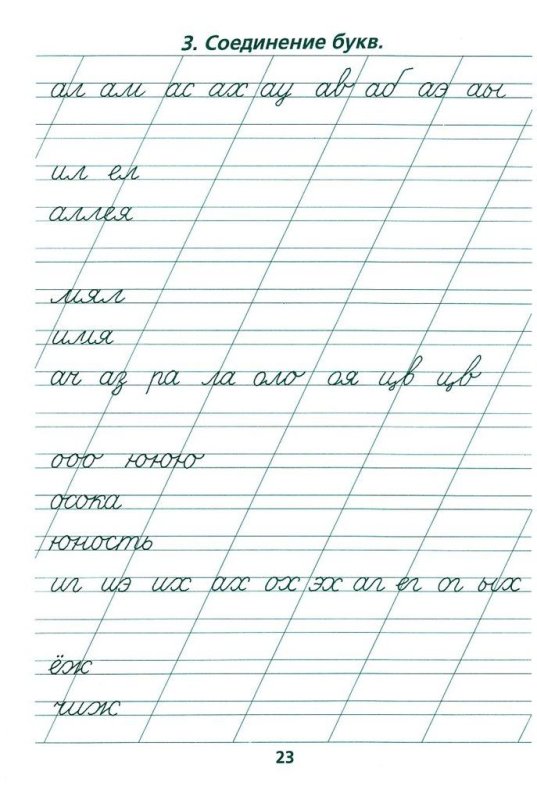 3. Соединение букв.
ал ам ас ах ац ав аб аэ аы
ил ел
аллея
мял
имя
ач аз ра ла оло оя цв цв
ооо ююю
осока
юность
иг иэ их ах ох эх аг ег ог ых
ёж
чиж
23